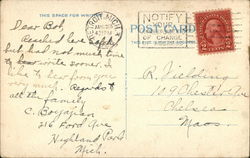 THIS SPACE FOR WRITING
POST CARD
NOTIFY
YOUR
OF CHANGE
Dear Bob,
Reached here safely
but had not much time
to write sooner. I
like to hear from you
very much. Regards to
all the family
C. Bozajian
216 Ford Ave
Highland Park
Mich.
R. Fielding
Chelsea
Mass.